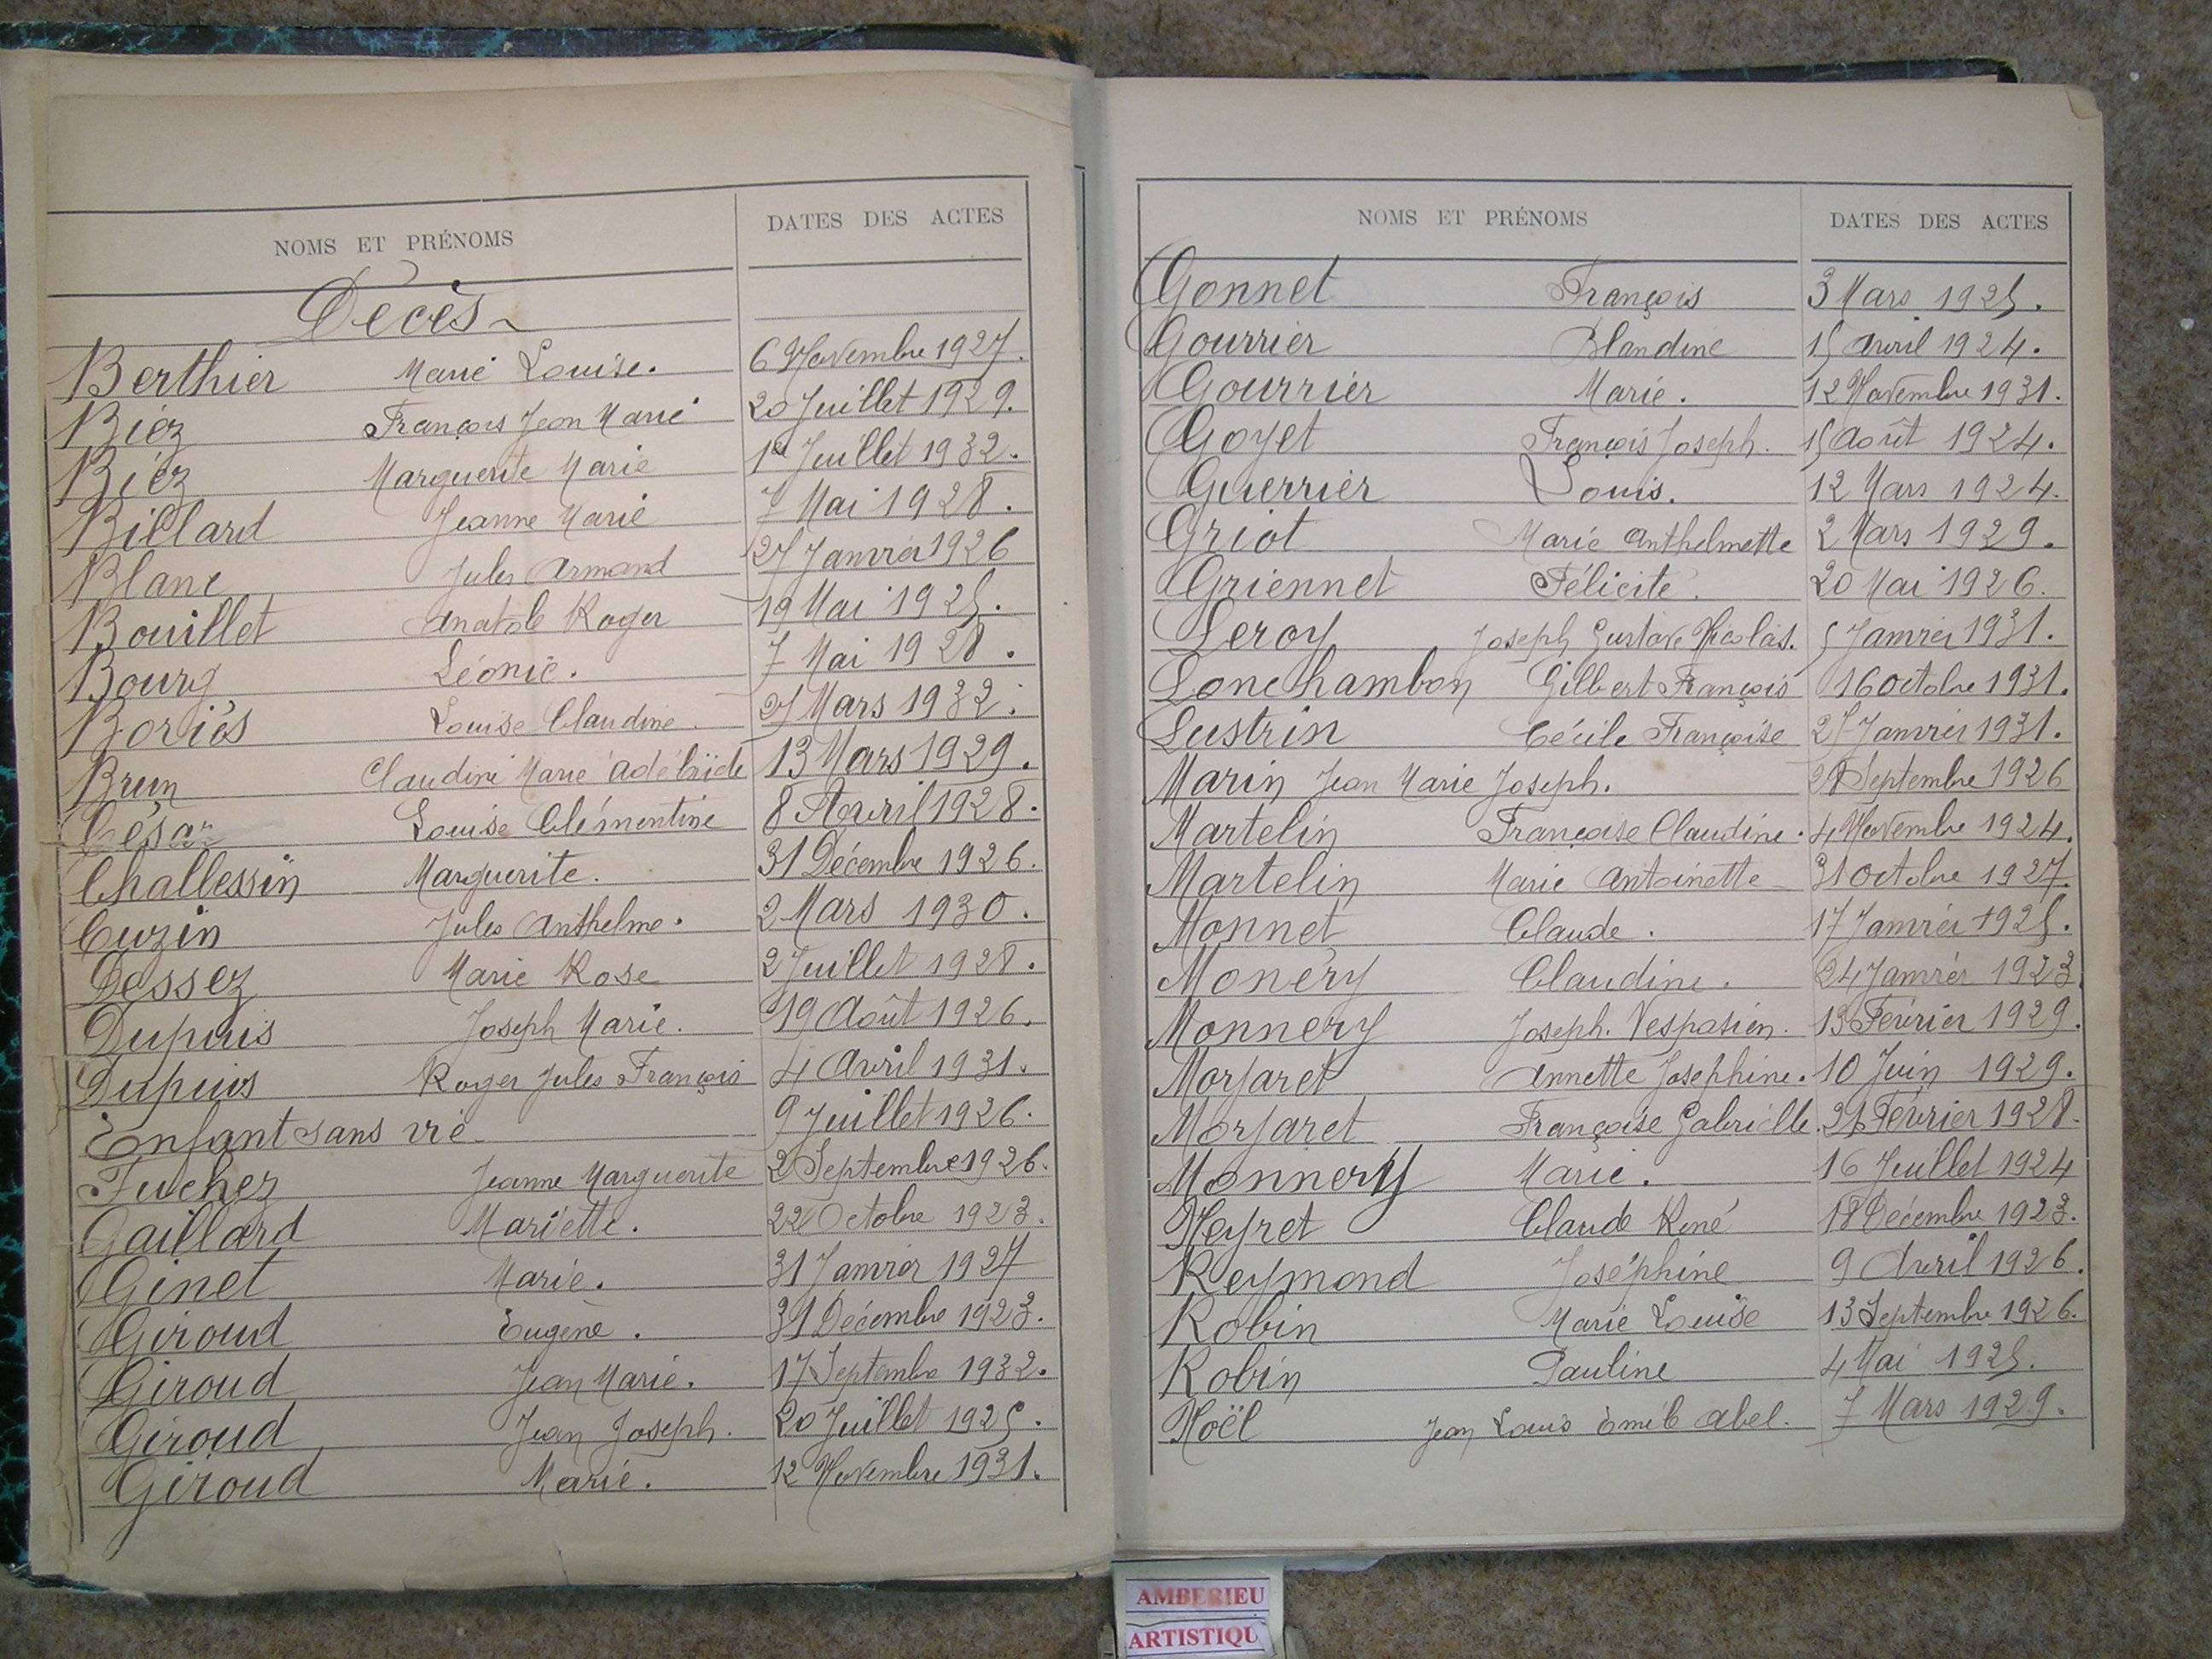 NOMS ET PRÉNOMS DATES DES ACTES
Décès
Berthier Marie Louise. 6 Novembre 1927.
Biéz François Jean Marie 20 Juillet 1929.
Biéz Marguerite Marie 1er Juillet 1932.
Billard Jeanne Marie 7 Mai 1928.
Blanc Jules Armand 27 Janvier 1926
Bouillet Anatole Roger 19 Mai 1925.
Bourg Léonie. 7 Mai 1928.
Boriés Louise Claudine. Mars 1932.
Brun Claudine Marie Adélaïde 13 Mars 1929.
César Louise Clémentine 8 Avril 1928.
Challessin Marguerite. 31 Décembre 1926.
Cuzin Jules Anthelme. 2 Mars 1930.
Dessez Marie Rose 2 Juillet 1928.
Dupuis Joseph Marie. 19 Août 1926.
Dupuis Roger Jules François 4 Avril 1931.
Enfant sans vie 9 Juillet 1926.
Fuchez Jeanne Marguerite 2 Septembre 1926.
Gaillard Mariette. 22 Octobre 1923.
Ginet Marie. 31 Janvier 1927
Giroud Eugène. 31 Décembre 1923.
Giroud Jean Marie. 17 Septembre 1932.
Giroud Jean Joseph. 20 Juillet 1925.
Giroud Marie. 12 Novembre 1931.
NOMS ET PRÉNOMS DATES DES ACTES
Gonnet François 3 Mars 1925.
Gourrier Blandine 15 Avril 1924.
Gourrier Marie. 12 Novembre 1931.
Goyet François Joseph. 15 Août 1924.
Guerrier Louis. 12 Mars 1924.
Griot Marie Anthelmette 2 Mars 1929.
Griennet Félicité. 20 Mai 1926.
Leroy Joseph Gustave Nicolas. 5 Janvier 1931.
Lonchambon Gilbert François 16 Octobre 1931.
Lustrin Cécile Françoise 27 Janvier 1931.
Marin Jean Marie Joseph. 28 Septembre 1926
Martelin Françoise Claudine. 4 Novembre 1924.
Martelin Marie Antoinette 31 Octobre 1927.
Monnet Claude. 17 Janvier 1925.
Monery Claudine. 24 Janvier 1923
Monnery Joseph. Vespasien. 13 Février 1929.
Morjaret Annette Joséphine. 10 Juin 1929.
Morjaret Françoise Gabrielle. 21 Février 1928.
Monnery Marie. 16 Juillet 1924
Neyret Claude René 18 Décembre 1923.
Reymond Joséphine 9 Avril 1926.
Robin Marie Louise 13 Septembre 1926.
Robin Pauline 4 Mai 1925.
Noël Jean Louis Emile Abel. 7 Mars 1929.
AMBERIEU
ARTISTIQU